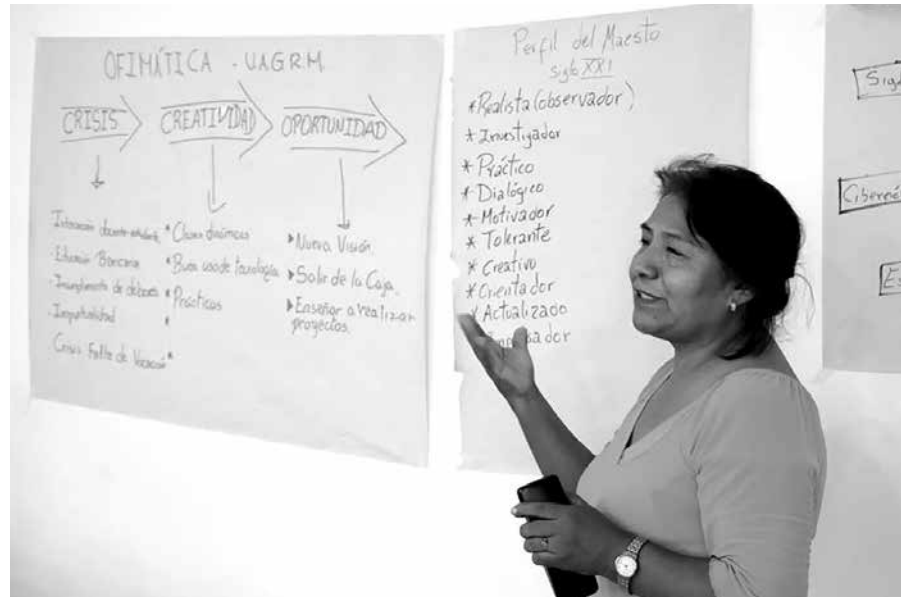 OFIMÁTICA - UAGRM
CRISIS
CREATIVIDAD
OPORTUNIDAD
Interacción docente-estudiante
- Educación Bancaria
- Incumplimiento de deberes
- Impuntualidad
- Crisis Falta de Vocación
* Clases dinámicas
* Buen uso de tecnología
* Prácticas
*
*
▸ Nueva Visión.
▸ Salir de la Caja.
▸ Enseñar a realizar
proyectos.
Perfil del Maesto
siglo XXI
* Realista (observador)
* Investigador
* Práctico
* Dialógico
* Motivador
* Tolerante
* Creativo
* Orientador
* Actualizado